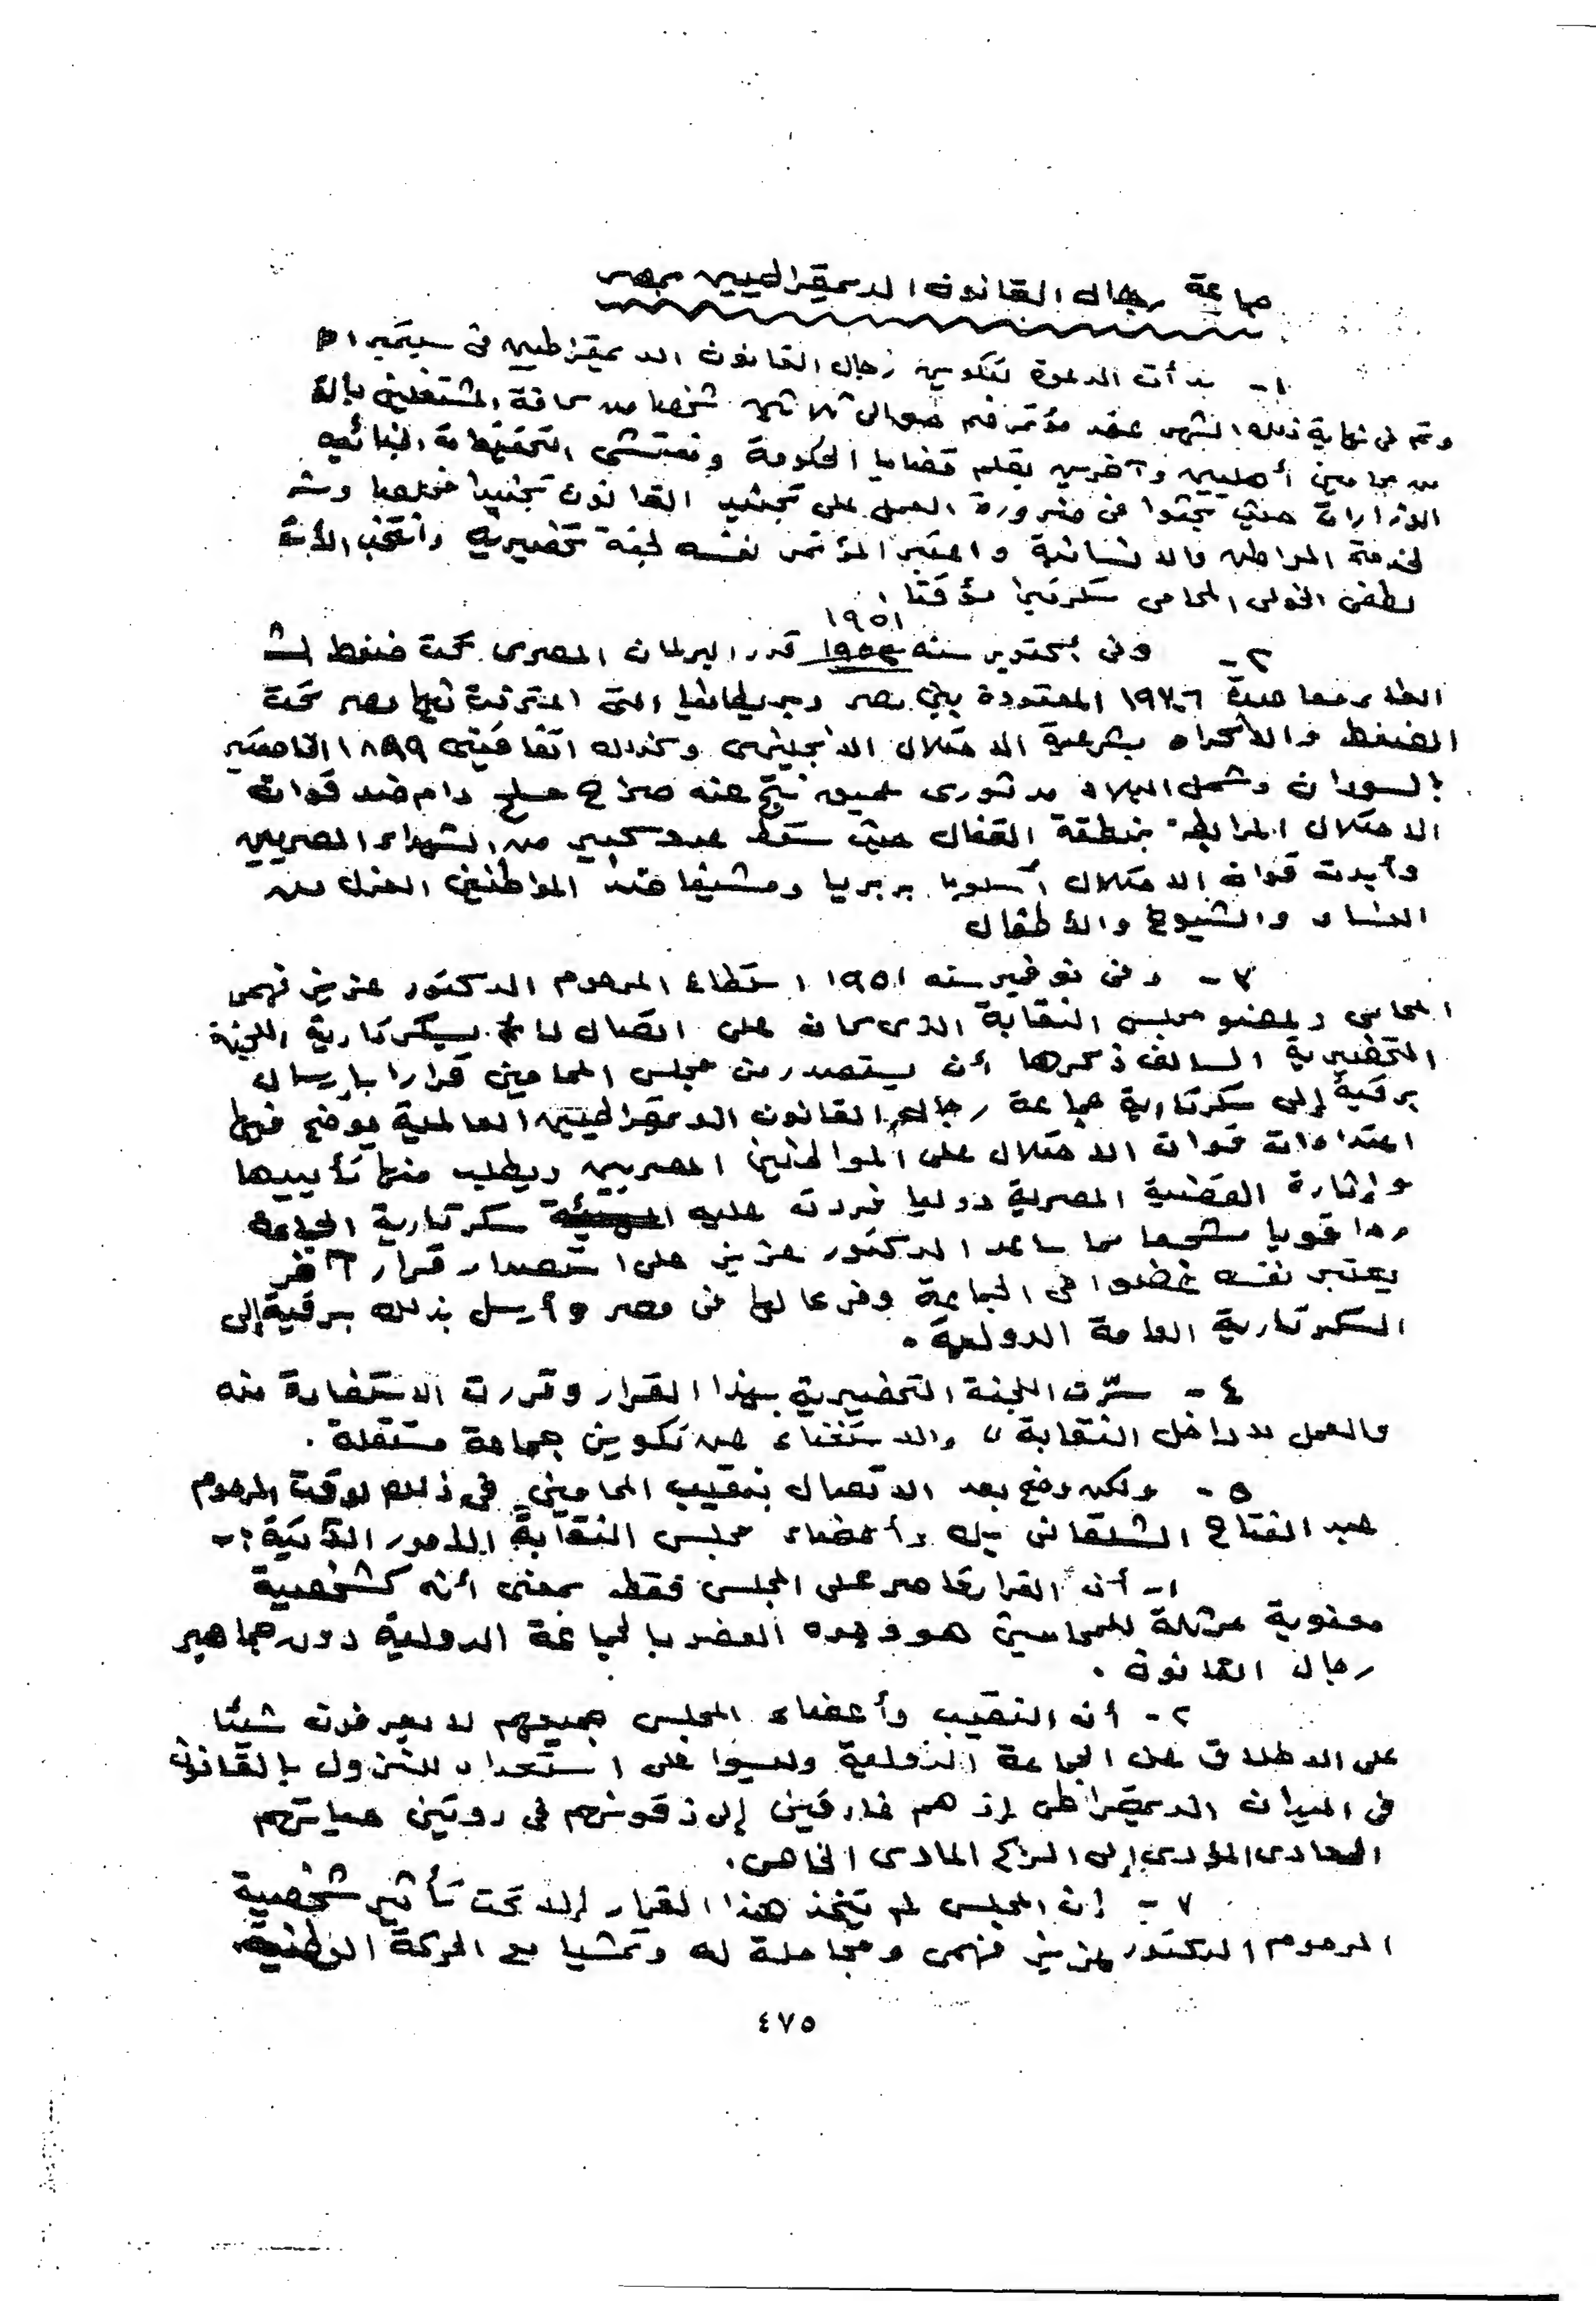 جماعة رجال القانون الديمقراطيين بمصر
١- بدأت الدعوة لتكوين رجال القانون الديمقراطيين فى سبتمبر
وتم فى نهاية ذلك الشهر عقد مؤتمر ضم حوالى ثلاثين شخصا من كافة المشتغلين
من محامين أهليين وآخرين بقلم قضايا الحكومة ومفتشى التحقيقات الجنائية
الوزارات حيث بحثوا فى ضرورة العمل على تجنيد القانون تجنيدا مخلصا
لخدمة المواطن والانسانية واعتبر المؤتمر نفسه لجنة تحضيرية وانتخب
لطفى الخولى المحامى سكرتيرا مؤقتا.
١٩٥١
٢- وفى أكتوبر سنه قرر البرلمان المصرى تحت ضغط
الغاء معاهدة ١٩٣٦ المعقودة بين مصر وبريطانيا التى اعترفت فيها مصر تحت
الضغط والاكراه بشرعية الاحتلال الانجليزى وكذلك اتفاقيتى ١٨٩٩ الخاصتين
بالسودان وشمل البلاد مد ثورى عميق نتج عنه صراع مسلح دام ضد قوات
الاحتلال المرابطة بمنطقة القنال حيث سقط عدد كبير من الشهداء المصريين
وأبدت قوات الاحتلال أسلوبا بربريا ومشينا ضد المواطنين العزل من
النساء والشيوخ والأطفال
٣- وفى نوفمبر سنه ١٩٥١ استطاع المرحوم الدكتور عزيز فهمى
المحامى وعضو مجلس النقابة الذى كان على اتصال بسكرتارية اللجنة
التحضيرية السالف ذكرها أن يستصدر من مجلس المحامين قرارا بإرسال
برقية إلى سكرتارية جماعة رجال القانون الديمقراطيين العالمية يوضح فيها
اعتداءات قوات الاحتلال على المواطنين المصريين ويطلب منها تأييدها
وإثارة القضية المصرية دوليا فردت عليه سكرتارية الجماعة
ردا قويا مشجعا مما ساعد الدكتور عزيز على استصدار قرار آخر
يعتبر نفسه عضوا فى الجماعة وفرعا لها فى مصر وأرسل بذلك برقية إلى
السكرتارية العامة الدولية.
٤- سرّت اللجنة التحضيرية بهذا القرار وقررت الاستفادة منه
والعمل من داخل النقابة والاستغناء عن تكوين جماعة مستقلة.
٥- ولكن وضح بعد الاتصال بنقيب المحامين فى ذلك الوقت المرحوم
عبد الفتاح الشلقانى بك وأعضاء مجلس النقابة الأمور الآتية :-
١- أن القرار قاصر على المجلس فقط بمعنى أنه كشخصية
معنوية ممثلة للمحامين هو وحده العضو بالجماعة الدولية دون جماهير
رجال القانون.
٢- أن النقيب وأعضاء المجلس جميعهم لا يعرفون شيئا
على الاطلاق عن الجماعة الدولية وليسوا على استعداد للنزول بالقانون
فى الميدان الديمقراطى إذ هم غارقين إلى ذقونهم فى روتين حياتهم
العادى المؤدى إلى التراكم المادى الخاص.
٣- إن المجلس لم يتخذ هذا القرار إلا تحت تأثير شخصية
المرحوم الدكتور عزيز فهمى ومجاملة له وتمشيا مع الحركة الوطنية
٤٧٥